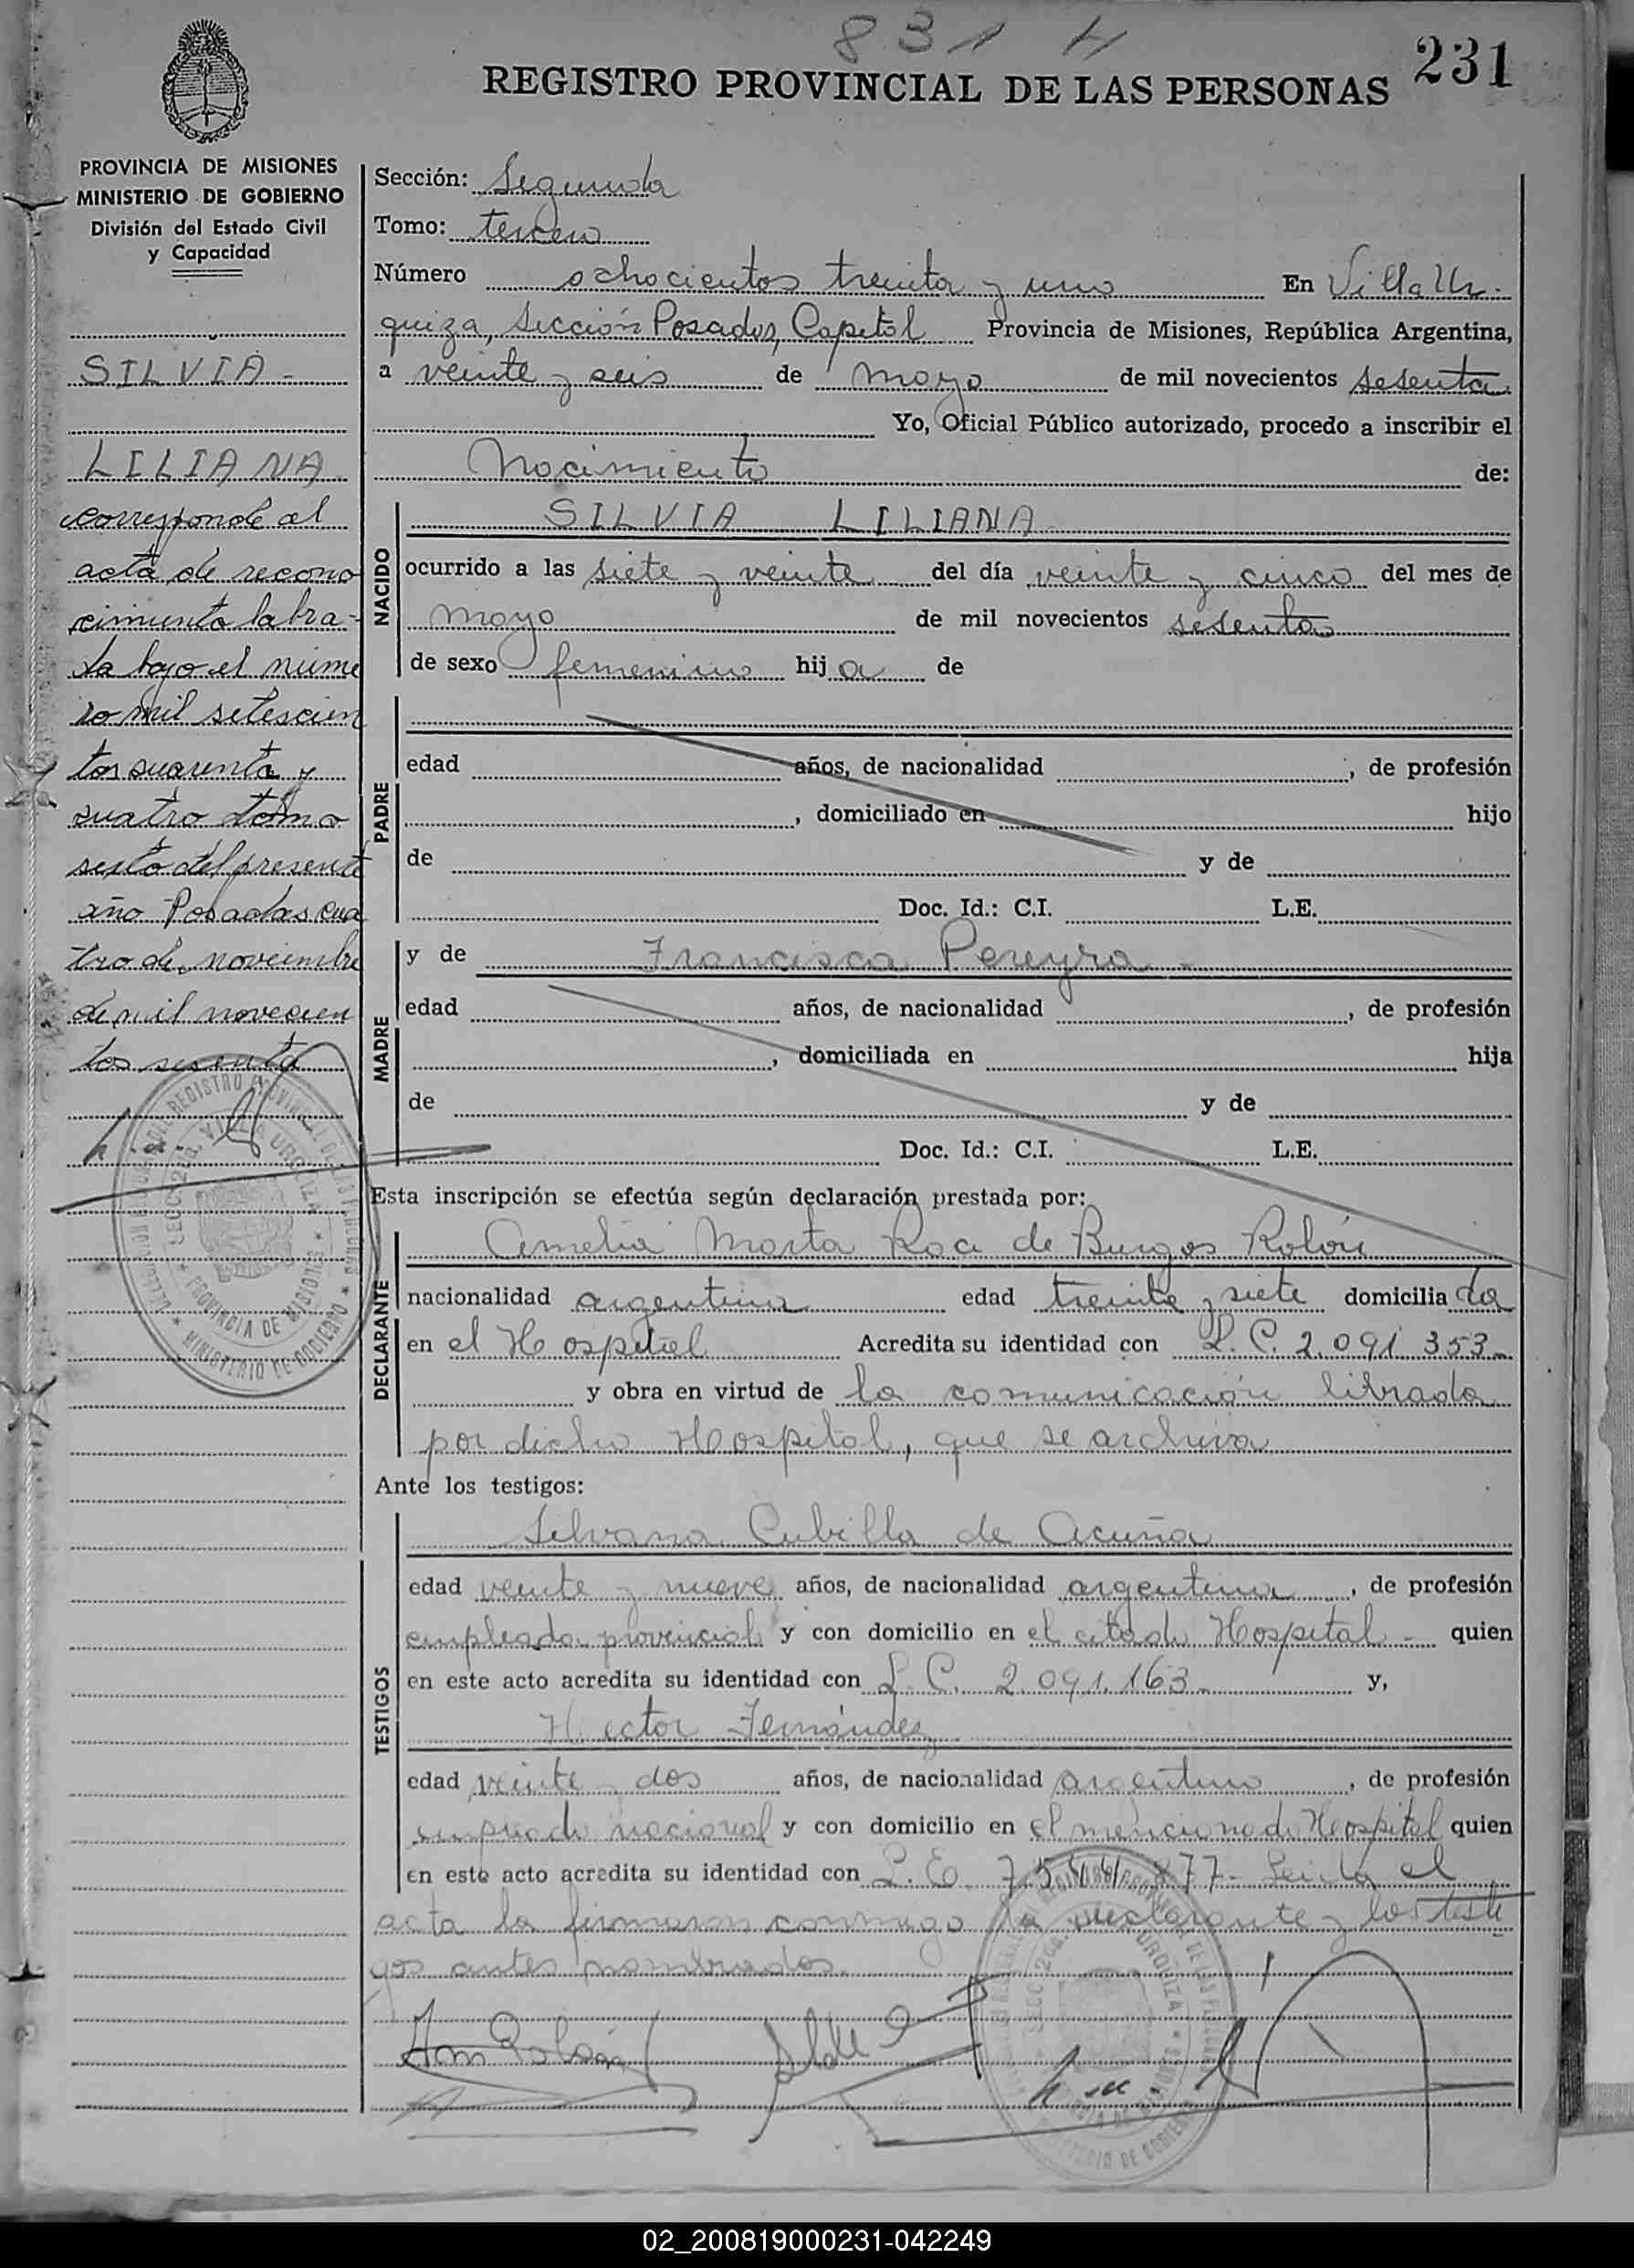 831 H
231
REGISTRO PROVINCIAL DE LAS PERSONAS
PROVINCIA DE MISIONES
MINISTERIO DE GOBIERNO
División del Estado Civil
y Capacidad
SILVIA -
LILIANA
corresponde al
acta de recono
cimiento labra-
da bajo el núme
ro mil setescien
tos cuarenta y
cuatro tomo
sesto del presente
año Posadas cua
tro de noviembre
de mil novecien
tos sesenta
Sección: Segunda
Tomo: tercero
Número ochocientos treinta y uno En Villa Ur-
quiza, Sección Posadas, Capital Provincia de Misiones, República Argentina,
a veinte y seis de mayo de mil novecientos sesenta
Yo, Oficial Público autorizado, procedo a inscribir el
Nacimiento de:
NACIDO
SILVIA LILIANA
ocurrido a las siete y veinte del día veinte y cinco del mes de
mayo de mil novecientos sesenta
de sexo femenino hija de
PADRE
edad años, de nacionalidad , de profesión
, domiciliado en hijo
de y de
Doc. Id.: C.I. L.E.
MADRE
y de Francisca Pereyra -
edad años, de nacionalidad , de profesión
, domiciliada en hija
de y de
Doc. Id.: C.I. L.E.
Esta inscripción se efectúa según declaración prestada por:
DECLARANTE
Amelia Marta Roa de Burgos Rolón
nacionalidad argentina edad treinta y siete domiciliada
en el Hospital Acredita su identidad con L. C. 2.091.353-
y obra en virtud de la comunicación librada
por dicho Hospital, que se archiva
Ante los testigos:
TESTIGOS
Silvana Cubilla de Acuña
edad veinte y nueve años, de nacionalidad argentina , de profesión
empleada provincial y con domicilio en el citado Hospital - quien
en este acto acredita su identidad con L. C. 2.091.163- y,
Hector Fernández
edad veinte y dos años, de nacionalidad argentino , de profesión
empleado nacional y con domicilio en el mencionado Hospital quien
en este acto acredita su identidad con L. E. 877- Leída el
acta la firmaron conmigo la declarante y los testi
gos antes nombrados.
REGISTRO PROVINCIAL DE LAS PERSONAS
SECC. 2da. VILLA URQUIZA
PROVINCIA DE MISIONES
MINISTERIO DE GOBIERNO
02_200819000231-042249